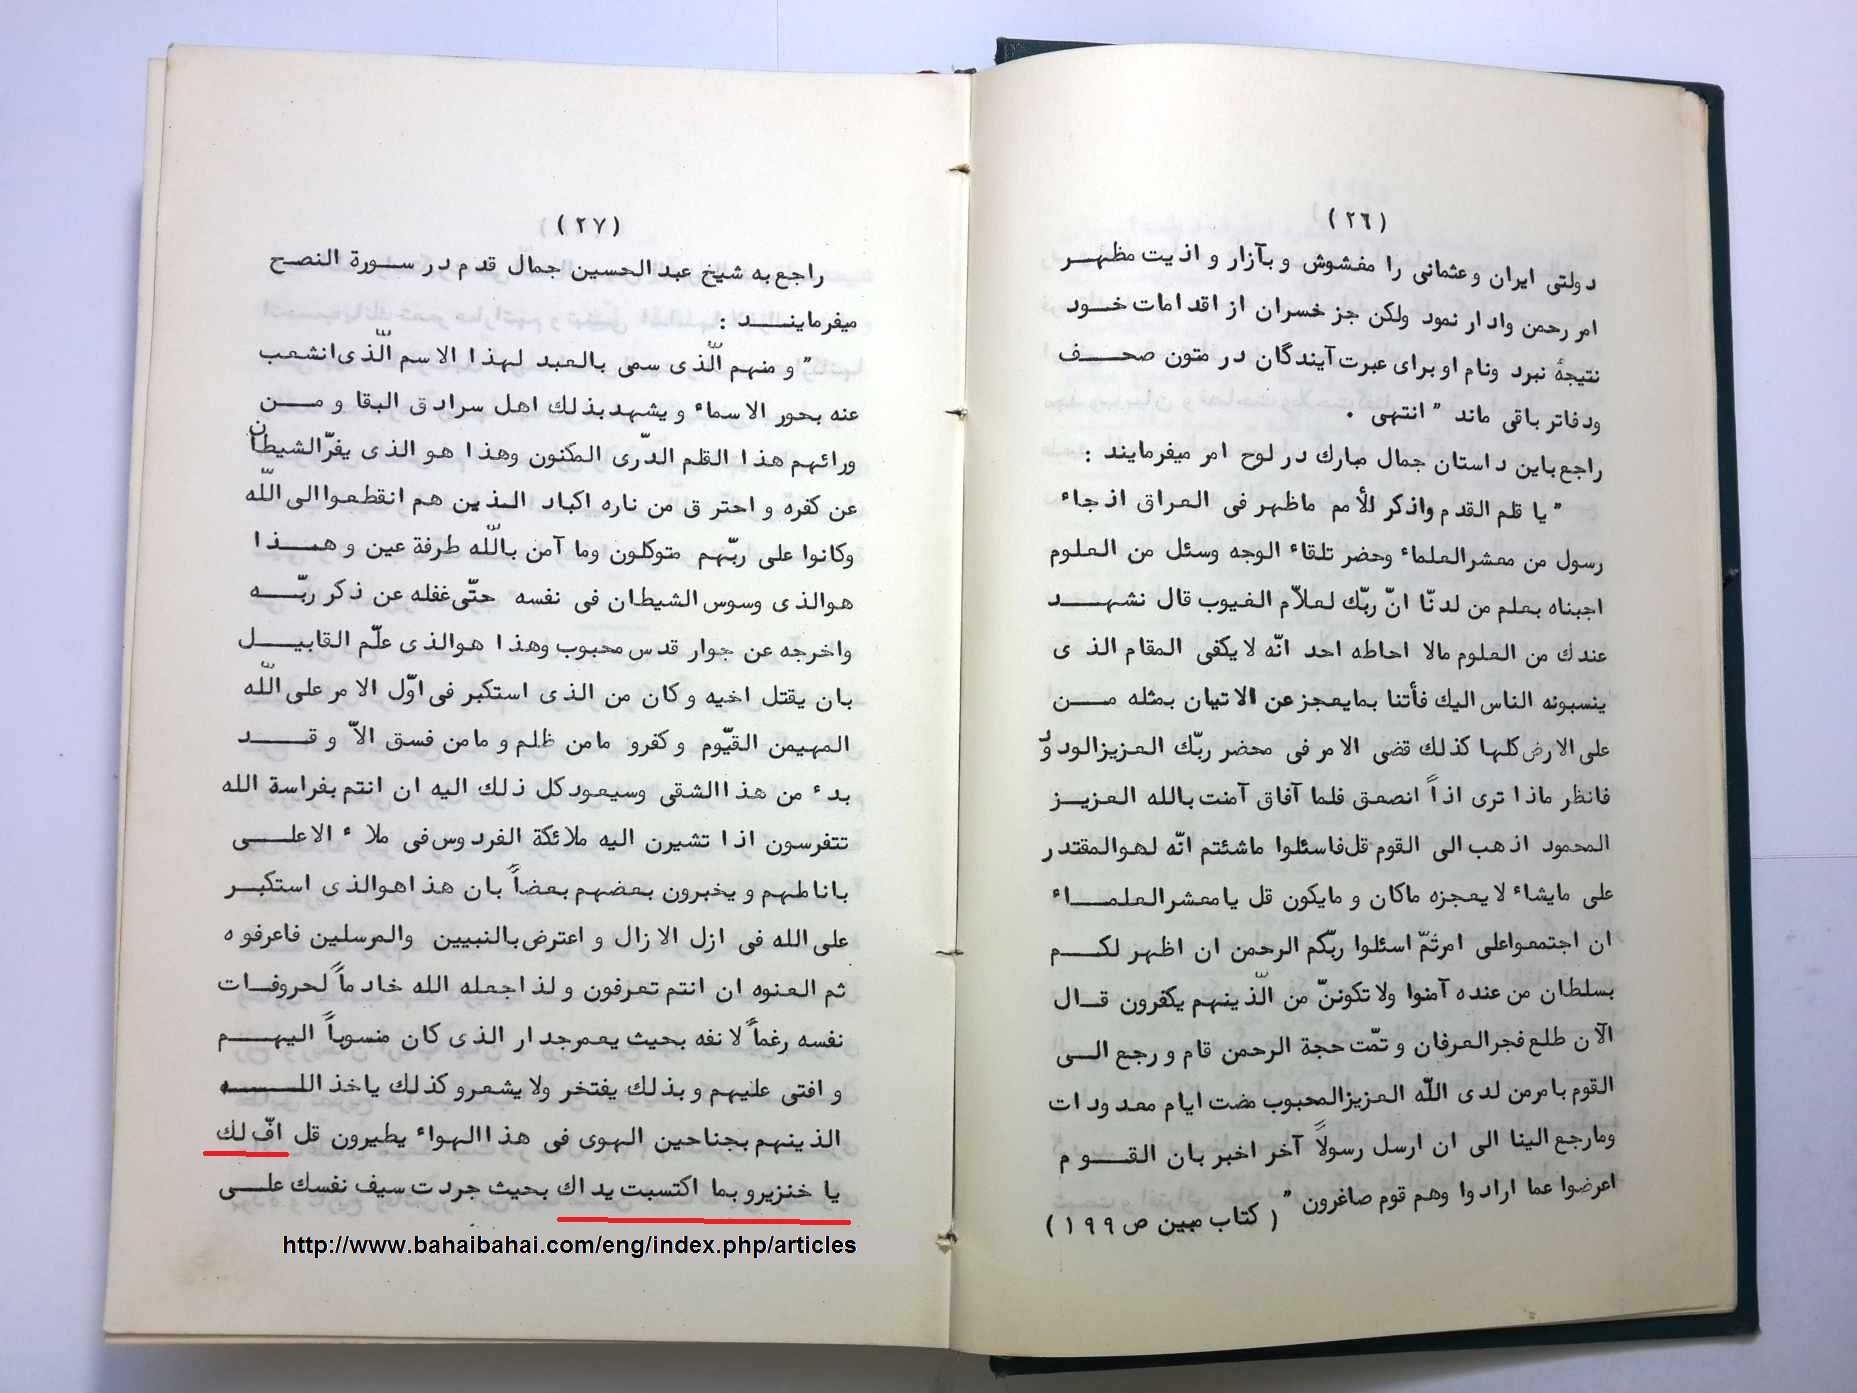 (٢٦)
دولتی ایران و عثمانی را مفشوش و بآزار و اذیت مظهر
امر رحمن وادار نمود ولکن جز خسران از اقدامات خود
نتیجهٔ نبرد ونام او برای عبرت آیندگان در متون صحف
ودفاتر باقی ماند " انتهی .
راجع باین داستان جمال مبارك در لوح امر میفرمایند :
" یا قلم القدم واذکر للأمم ماظهر فی العراق اذ جاء
رسول من معشر العلماء وحضر تلقاء الوجه وسئل من العلوم
اجبناه بعلم من لدنّا انّ ربّك لعلاّم الغیوب قال نشهد
عندك من العلوم مالا احاطه احد انّه لا یکفی المقام الذی
ینسبونه الناس الیك فأتنا بمایعجز عن الاتیان بمثله من
علی الارض کلها کذلك قضی الامر فی محضر ربّك العزیز الودود
فانظر ماذا تری اذاً انصعق فلما آفاق آمنت بالله العزیز
المحمود اذهب الی القوم قل فاسئلوا ماشئتم انّه لهو المقتدر
علی مایشاء لا یعجزه ماکان و مایکون قل یا معشر العلماء
ان اجتمعوا علی امر ثمّ اسئلوا ربّکم الرحمن ان اظهر لکم
بسلطان من عنده آمنوا ولا تکوننّ من الّذینهم یکفرون قال
الآن طلع فجر العرفان و تمّت حجة الرحمن قام و رجع الی
القوم بامر من لدی اللّه العزیز المحبوب مضت ایام معدودات
ومارجع الینا الی ان ارسل رسولاً آخر اخبر بان القوم
اعرضوا عما ارادوا وهم قوم صاغرون " ( کتاب مبین ص ١٩٩ )
(٢٧)
راجع به شیخ عبدالحسین جمال قدم در سورة النصح
میفرمایند :
" و منهم الّذی سمی بالعبد لهذا الاسم الّذی انشعب
عنه بحور الاسماء و یشهد بذلك اهل سرادق البقا و من
ورائهم هذا القلم الدّری المکنون وهذا هو الذی یفرّ الشیطان
عن کفره و احترق من ناره اکباد الذین هم انقطعوا الی اللّه
وکانوا علی ربّهم متوکلون وما آمن باللّه طرفة عین و هذا
هوالذی وسوس الشیطان فی نفسه حتّی غفله عن ذکر ربّه
واخرجه عن جوار قدس محبوب وهذا هوالذی علّم القابیل
بان یقتل اخیه و کان من الذی استکبر فی اوّل الامر علی اللّه
المهیمن القیّوم و کفرو مامن ظلم و مامن فسق الاّ و قد
بدء من هذا الشقی وسیعود کل ذلك الیه ان انتم بفراسة الله
تتفرسون اذا تشیرن الیه ملائکة الفردوس فی ملاء الاعلی
باناملهم و یخبرون بعضهم بعضاً بان هذا هوالذی استکبر
علی الله فی ازل الازال و اعترض بالنبیین والمرسلین فاعرفوه
ثم العنوه ان انتم تعرفون ولذا جعله الله خادماً لحروفات
نفسه رغماً لانفه بحیث یعمر جدار الذی کان منسوباً الیهم
و افتی علیهم و بذلك یفتخر ولا یشعرو کذلك یاخذ اللـه
الذینهم بجناحین الهوی فی هذا الهواء یطیرون قل افّ لك
یا خنزیرو بما اکتسبت یداك بحیث جردت سیف نفسك علی
http://www.bahaibahai.com/eng/index.php/articles